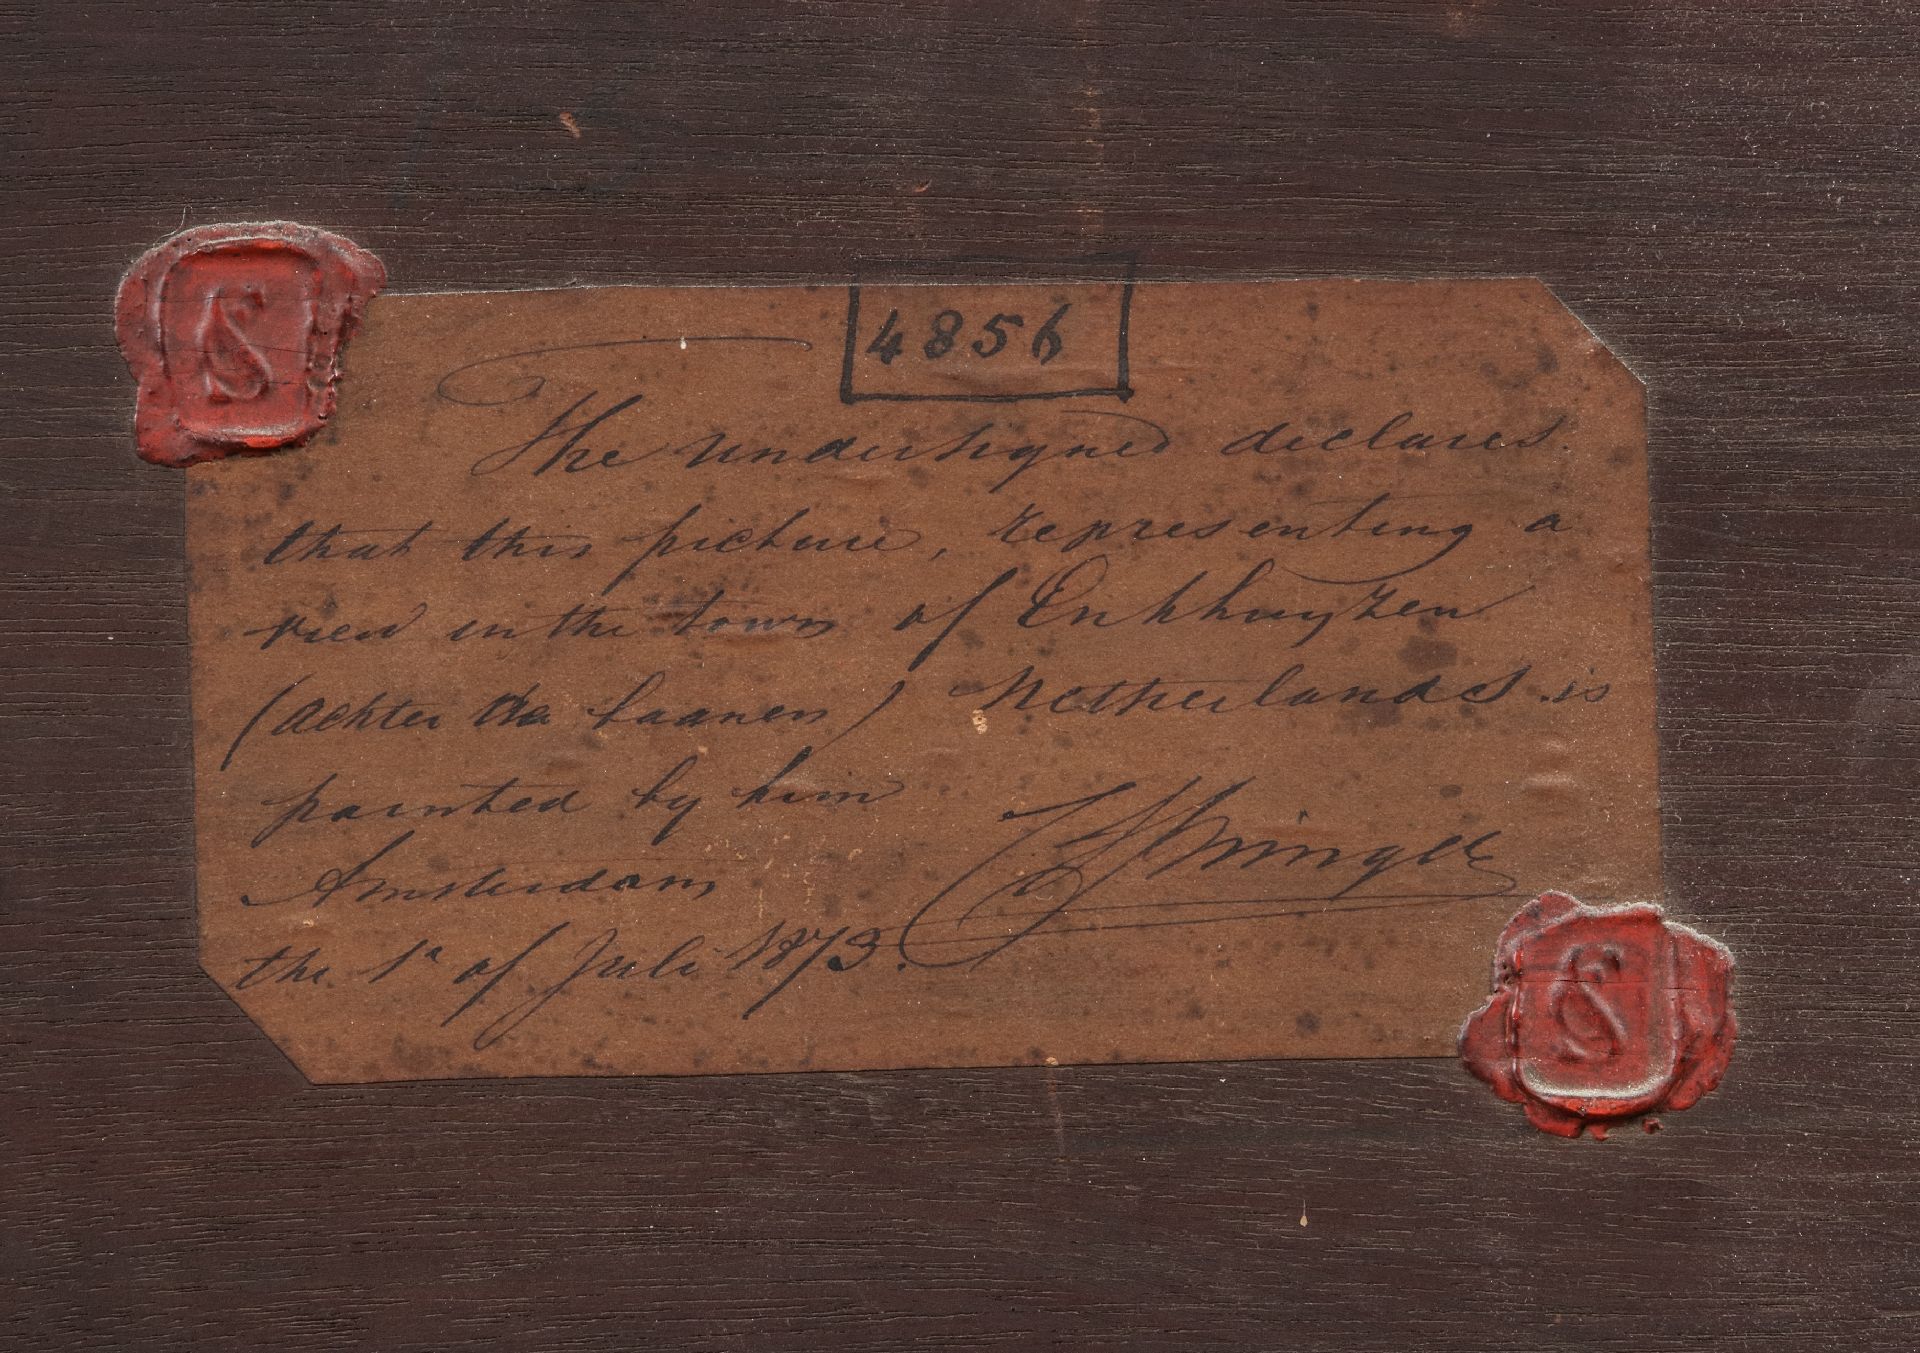 S
4856
The undersigned declares.
that this picture, representing a
view in the town of Enkhuyzen
(achter de laanen) Netherlands. is
painted by him
C Springer
Amsterdam
the 1e of Juli 1873.
S